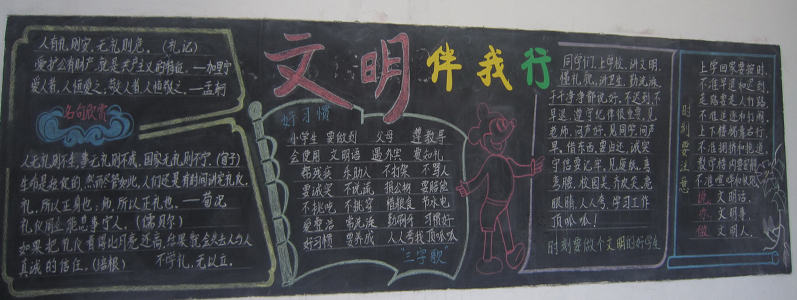 文明伴我行
人有礼则安，无礼则危。（礼记）
爱护公有财产，就是共产主义的特征。——加里宁
爱人者，人恒爱之，敬人者，人恒敬之。——孟轲
名句欣赏
人无礼则不生，事无礼则不成，国家无礼则不宁。（荀子）
生命是短促的，然而尽管如此，人们还是有时间讲究礼仪。
礼，所以正身也，师，所以正礼也。——荀况
礼仪周全能息事宁人。（儒贝尔）
如果把礼仪看得比月亮还高，结果就会失去人与人
真诚的信任。（培根） 不学礼，无以立。
好习惯
小学生 要做到 父母 尊教导
会使用 文明话 遇外宾 要知礼
帮残矣 乐助人 不打架 不骂人
要诚实 不说谎 损公物 要赔偿
不挑吃 不挑穿 惜粮食 节水电
爱整洁 常洗澡 勤刷牙 习惯好
好习惯 要养成 人人夸我顶呱呱
"三字歌"
同学们，上学校，讲文明，
懂礼貌，讲卫生，勤洗澡，
干干净净都说好，不迟到，不
早退，遵守纪律很重要，见
老师，问声好，见同学，问声
早，借东西，要归还，诚实
守信要记牢，见废纸，弯
弯腰，校园是
眼睛，人人夸，学习工作
顶呱呱！
时刻要做个文明的好学生
时刻要注意
上学回家要按时，
不准早退和迟到，
走路要走人行路，
不准追逐和打闹，
上下楼梯靠右行，
不准拥挤和抢道，
说 文明话，
办 文明事，
做 文明人。